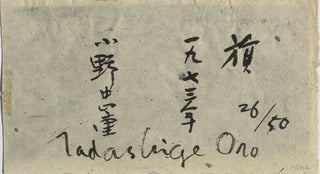 旗
26/50
一九七三年
小野忠重
Tadashige Ono